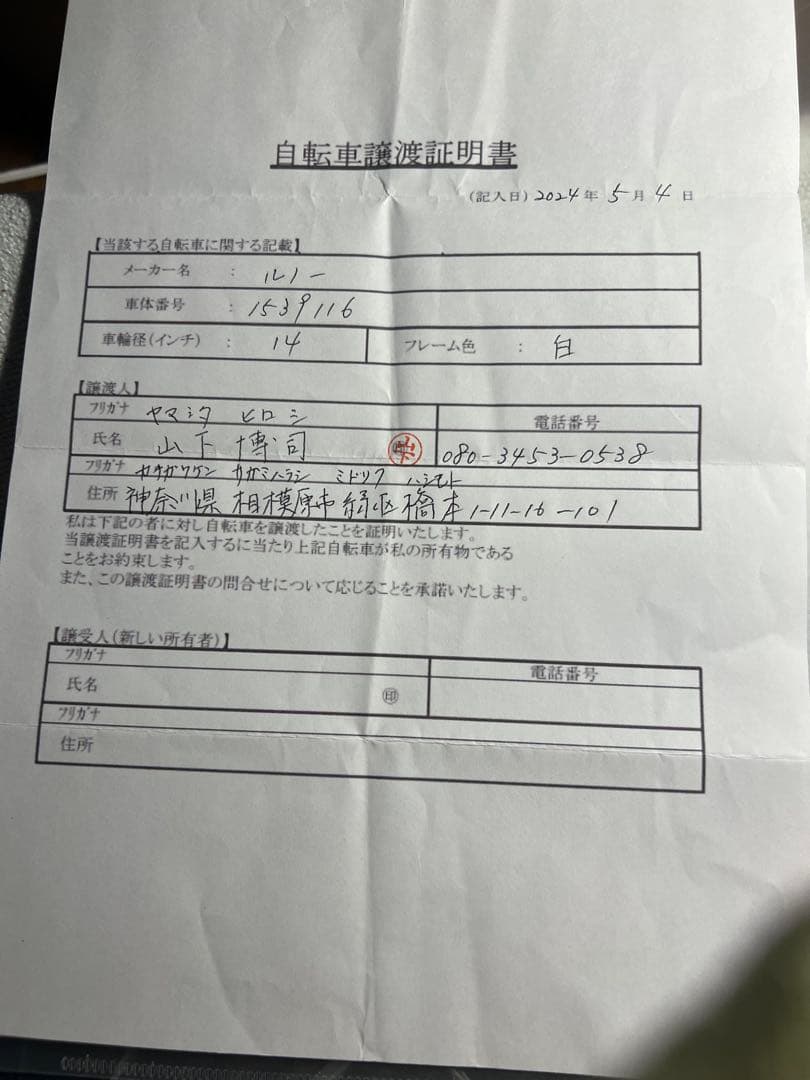 自転車譲渡証明書
(記入日) 2024年 5月 4日
【当該する自転車に関する記載】
メーカー名 : ルノー
車体番号 : 1539116
車輪径(インチ) : 14 フレーム色 : 白
【譲渡人】
フリガナ ヤマシタ ヒロシ 電話番号
氏名 山下 博司 ㊞ 080-3453-0538
フリガナ ミドリク ハシモト
住所 神奈川県 相模原市 緑区 橋本 1-11-16-101
私は下記の者に対し自転車を譲渡したことを証明いたします。
当譲渡証明書を記入するに当たり上記自転車が私の所有物である
ことをお約束します。
また、この譲渡証明書の問合せについて応じることを承諾いたします。
【譲受人(新しい所有者)】
フリガナ 電話番号
氏名 ㊞
フリガナ
住所